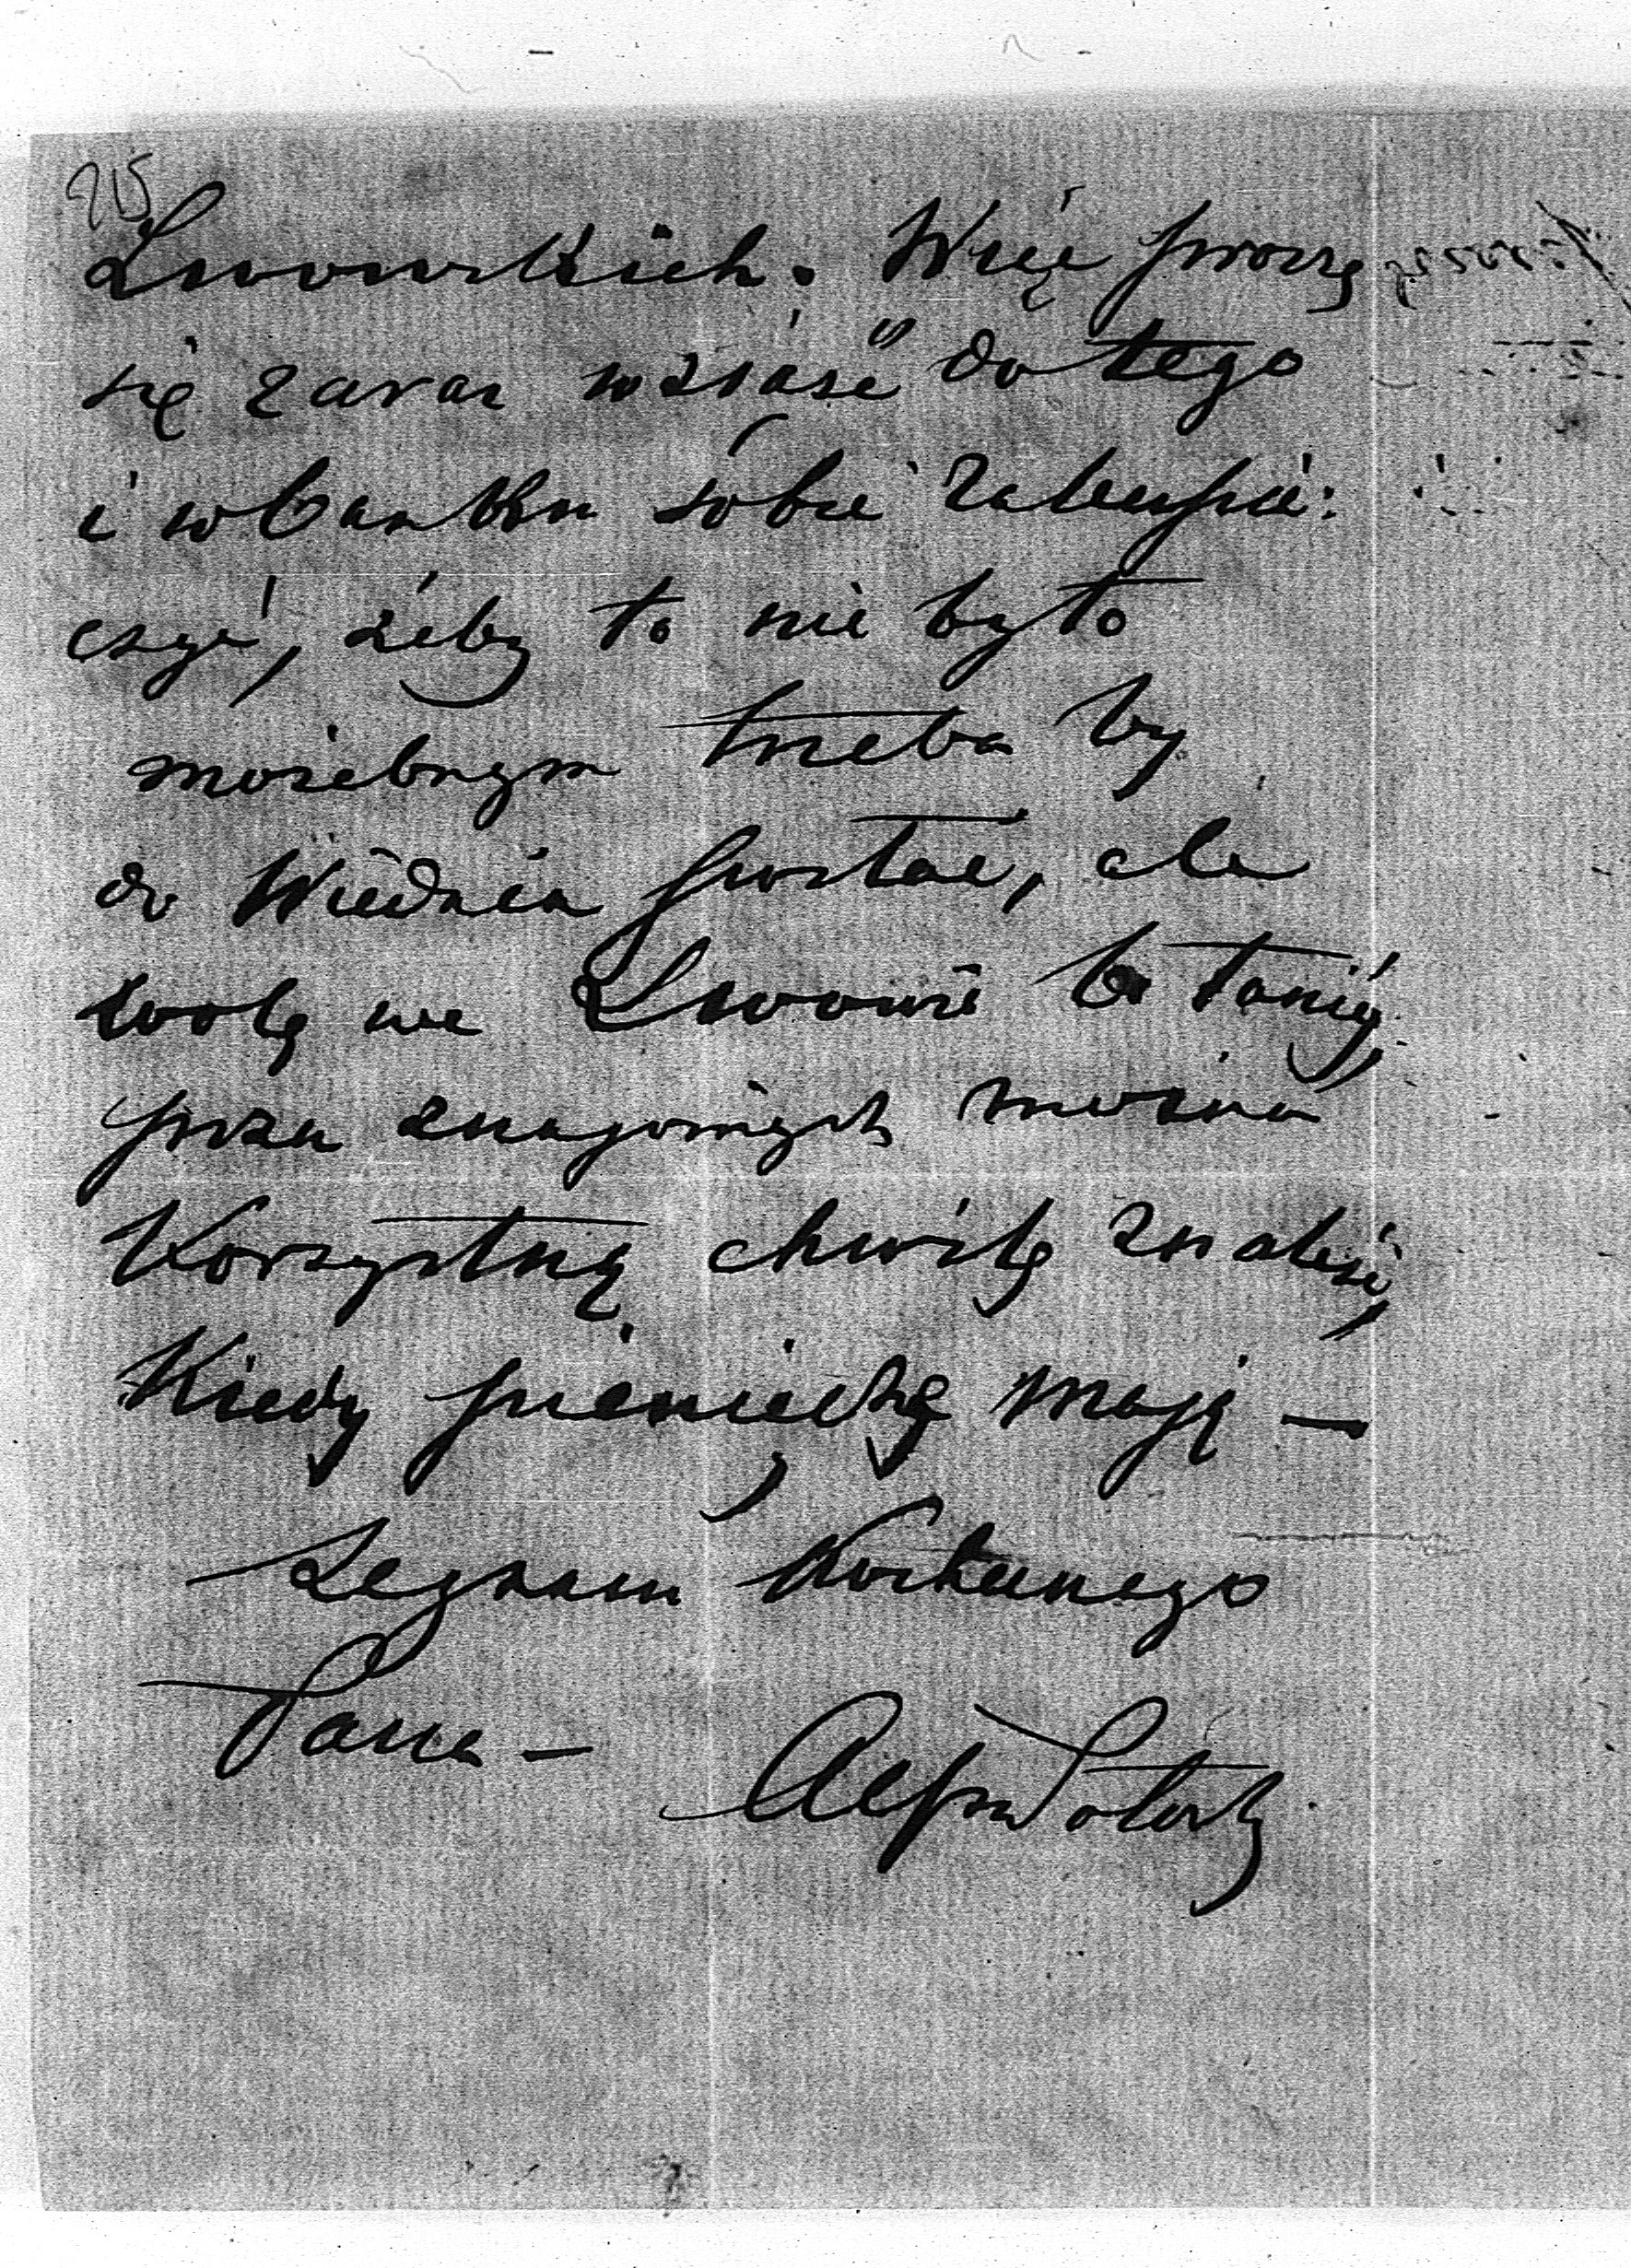 215
Lwowskich. Więc proszę
się zaraz wziąść do tego
i w banku sobie zabespie:
czyć, żeby to nie było
możebnym trzeba by
do Wiednia posłać, ale
wolę we Lwowie bo taniéj,
przez znajomych można
korzystną chwilę znaleść,
Kiedy pieniądze mają —
Żegnam Kochanego
Pana —
Alfred Potocki